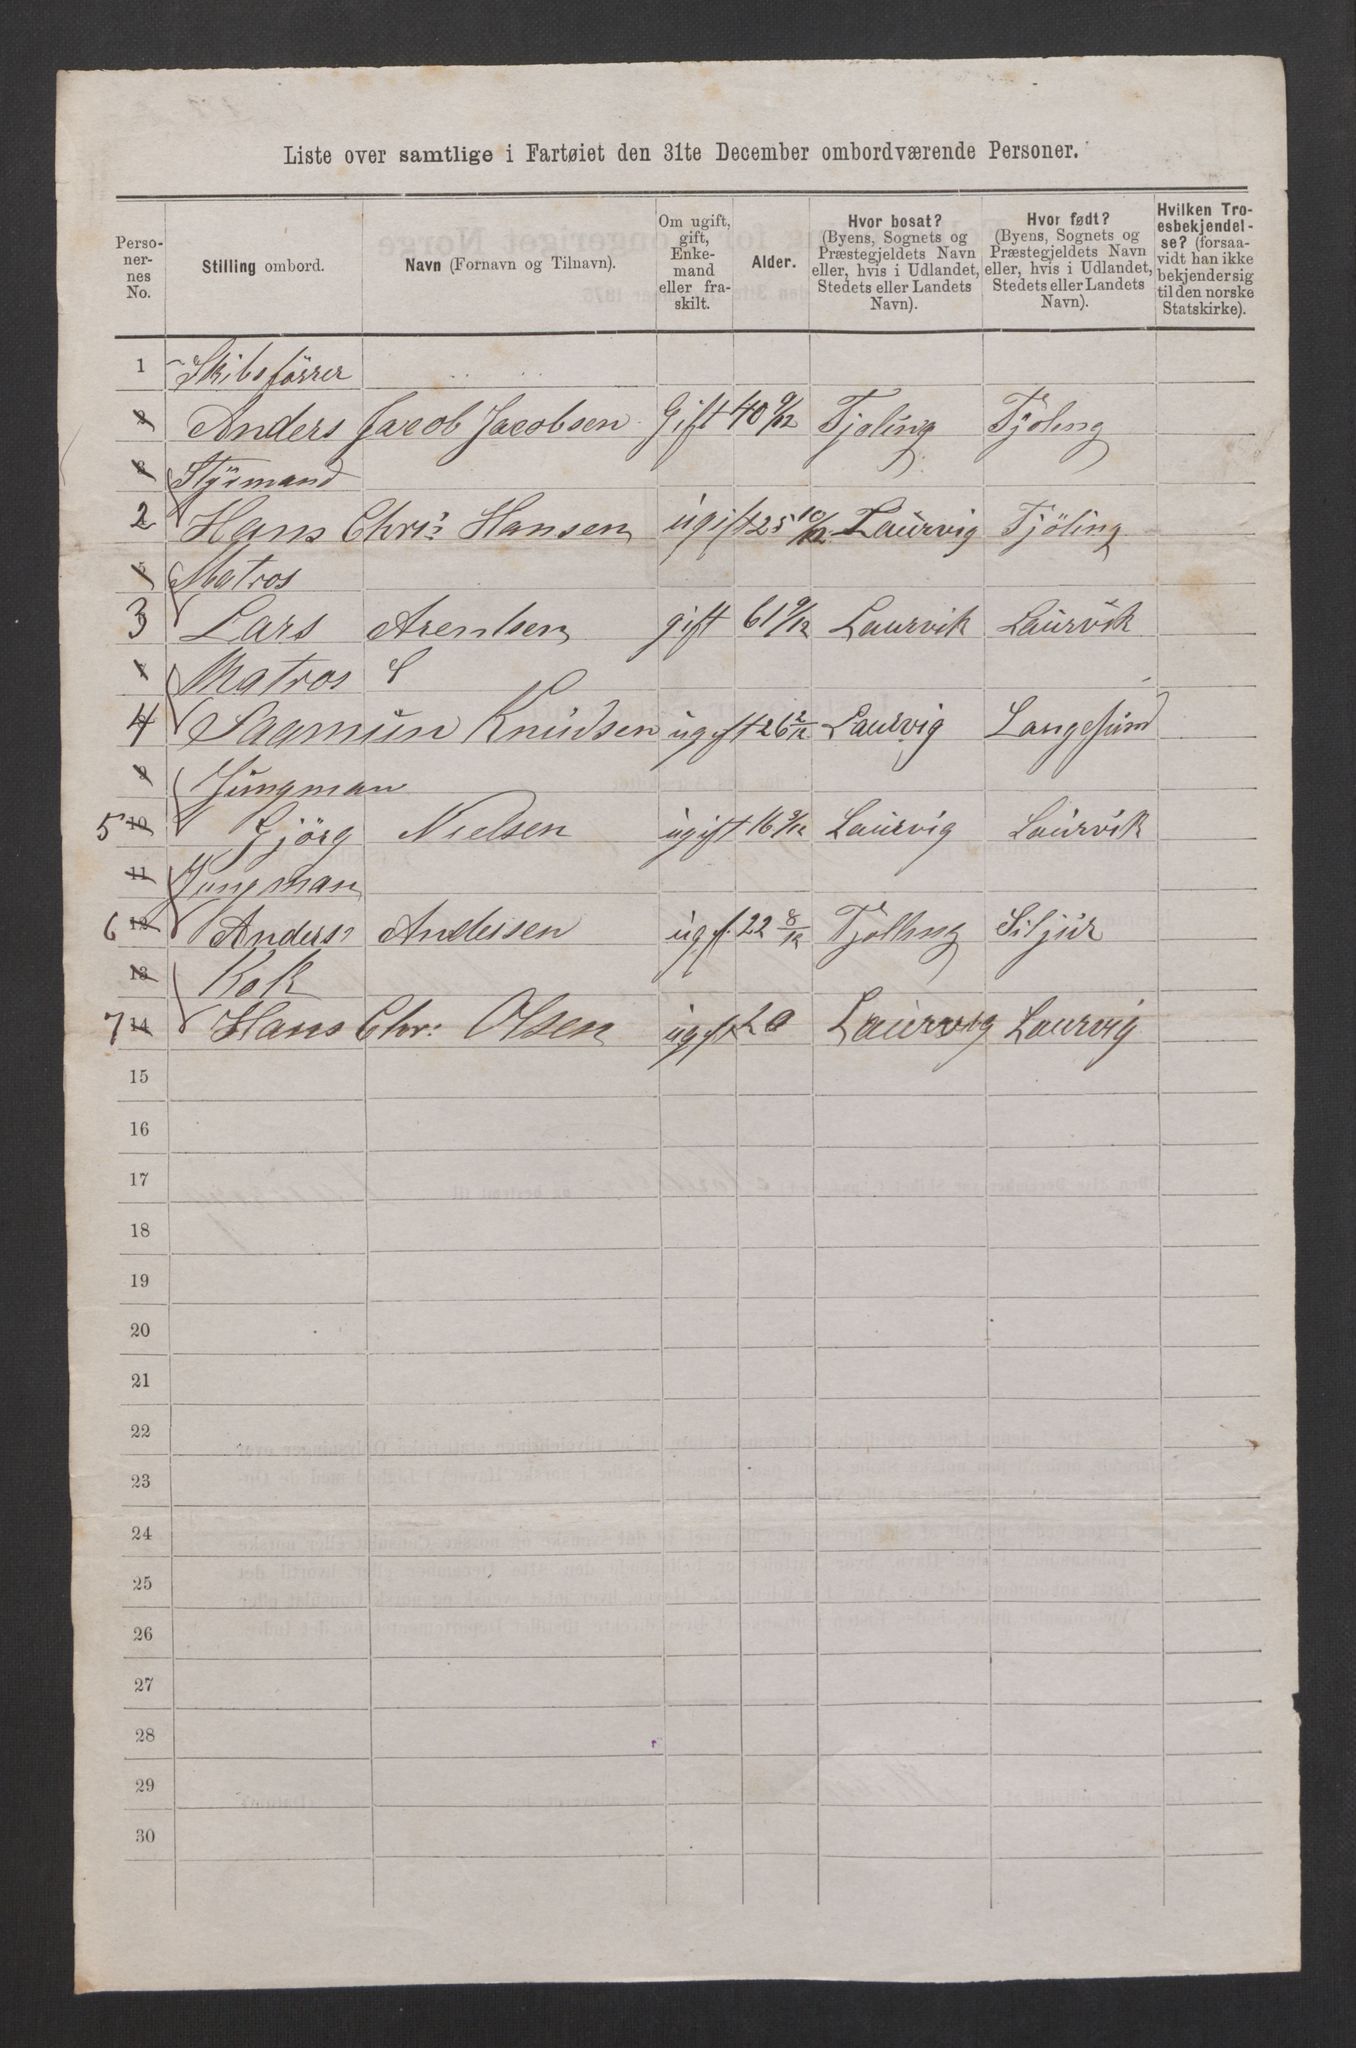 Liste over samtlige i Fartøiet den 31te December ombordværende Personer.
Perso-
ner-
nes
No.
Stilling ombord.
Navn (Fornavn og Tilnavn).
Om ugift,
gift,
Enke-
mand
eller fra-
skilt.
Alder.
Hvor bosat?
(Byens, Sognets og
Præstegjeldets Navn
eller, hvis i Udlandet,
Stedets eller Landets
Navn).
Hvor født?
(Byens, Sognets og
Præstegjeldets Navn
eller, hvis i Udlandet,
Stedets eller Landets
Navn).
Hvilken Tro-
esbekjendel-
se? (forsaa-
vidt han ikke
bekjender sig
til den norske
Statskirke).
1 Skibsförrer
2 Anders Jacob Jacobsen Gift 40 9/12 Tjoling Tjöling
3 Styrmand
2 Hans Chr: Hansen ugift 25 10/12 Laurvig Tjöling
5 Matros
3 Lars Arentsen gift 61 9/12 Laurvik Laurvik
7 Matros
4 Sagmun Knudsen ugift 26 2/12 Laurvig Langesund
9 Jungman
5 10 Nielsen ugift 16 9/12 Laurvig Laurvik
11 Jungman
6 12 Anders Andersen ugf. 22 8/12 Tjölling Siljur
13 Kok
7 14 Hans Chr: Olsen ugift 20 Laurvig Laurvig
15
16
17
18
19
20
21
22
23
24
25
26
27
28
29
30